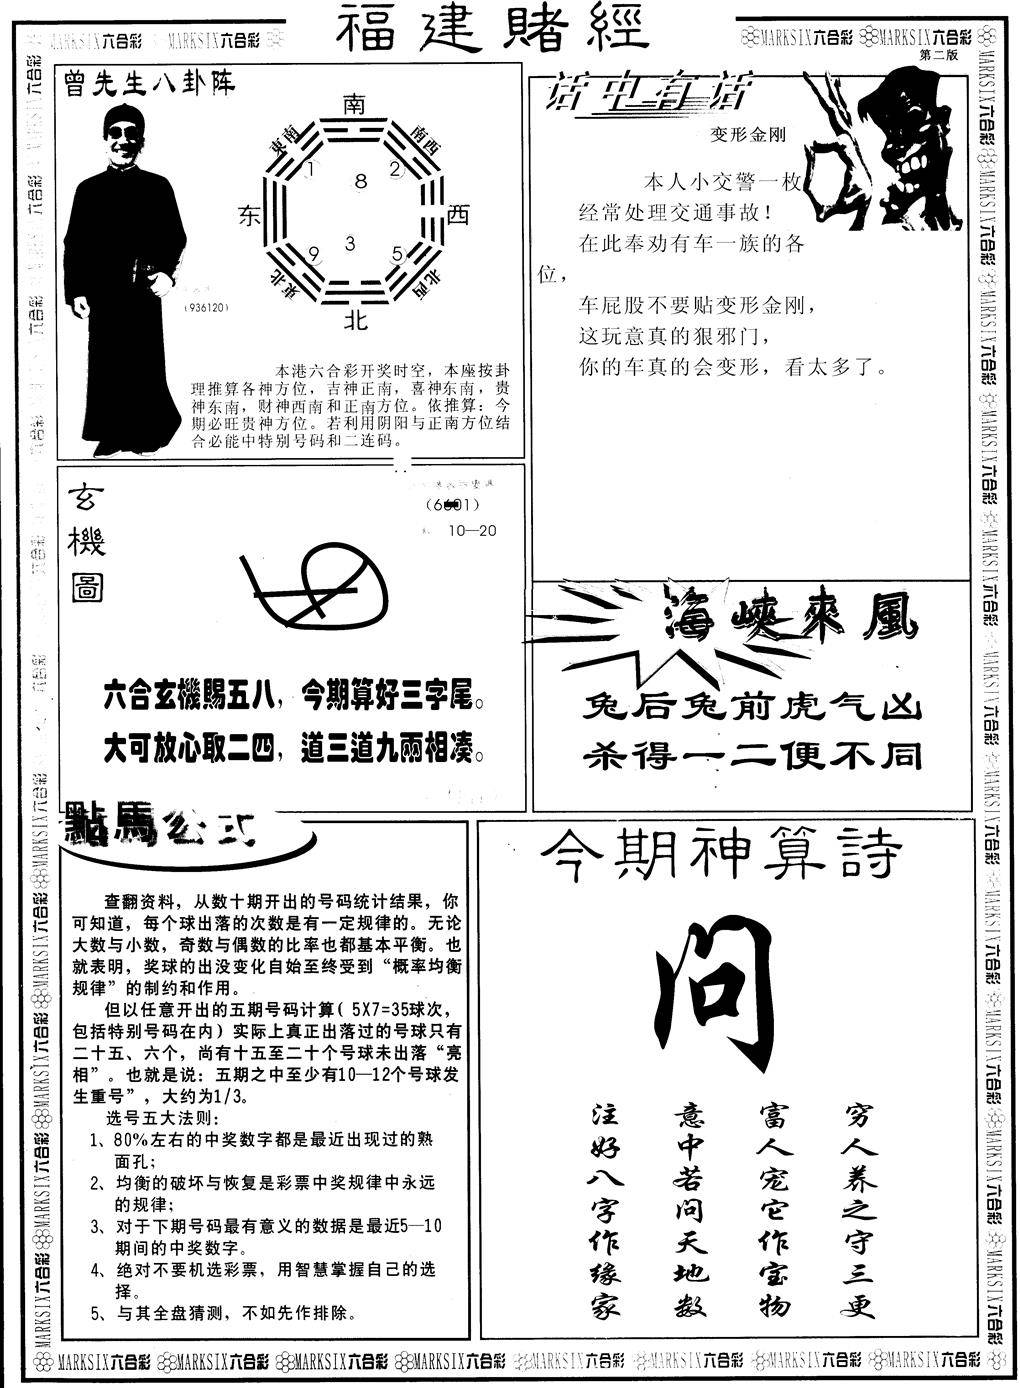 福建賭經
MARKSIX六合彩 MARKSIX六合彩
MARKSIX六合彩 MARKSIX六合彩
第二版
曾先生八卦阵
南
東南
南西
1
2
8
东
西
9
3
5
東北
北西
北
(936120)
本港六合彩开奖时空，本座按卦
理推算各神方位，吉神正南，喜神东南，贵
神东南，财神西南和正南方位。依推算：今
期必旺贵神方位。若利用阴阳与正南方位结
合必能中特别号码和二连码。
话中有话
变形金刚
本人小交警一枚
经常处理交通事故！
在此奉劝有车一族的各
位，
车屁股不要贴变形金刚，
这玩意真的狠邪门，
你的车真的会变形，看太多了。
玄機圖
10—20
六合玄機賜五八，今期算好三字尾。
大可放心取二四，道三道九兩相凑。
海峽來風
兔后兔前虎气凶
杀得一二便不同
點馬公式
查翻资料，从数十期开出的号码统计结果，你
可知道，每个球出落的次数是有一定规律的。无论
大数与小数，奇数与偶数的比率也都基本平衡。也
就表明，奖球的出没变化自始至终受到“概率均衡
规律”的制约和作用。
但以任意开出的五期号码计算( 5X7=35球次，
包括特别号码在内）实际上真正出落过的号球只有
二十五、六个，尚有十五至二十个号球未出落“亮
相”。也就是说：五期之中至少有10—12个号球发
生重号”，大约为1/3。
选号五大法则：
1、80%左右的中奖数字都是最近出现过的熟
面孔；
2、均衡的破坏与恢复是彩票中奖规律中永远
的规律；
3、对于下期号码最有意义的数据是最近5—10
期间的中奖数字。
4、绝对不要机选彩票，用智慧掌握自己的选
择。
5、与其全盘猜测，不如先作排除。
今期神算詩
问
穷人养之守三更
富人宠它作宝物
意中若问天地数
注好八字作缘家
MARKSIX六合彩 MARKSIX六合彩 MARKSIX六合彩 MARKSIX六合彩 MARKSIX六合彩 MARKSIX六合彩 MARKSIX六合彩 MARKSIX六合彩